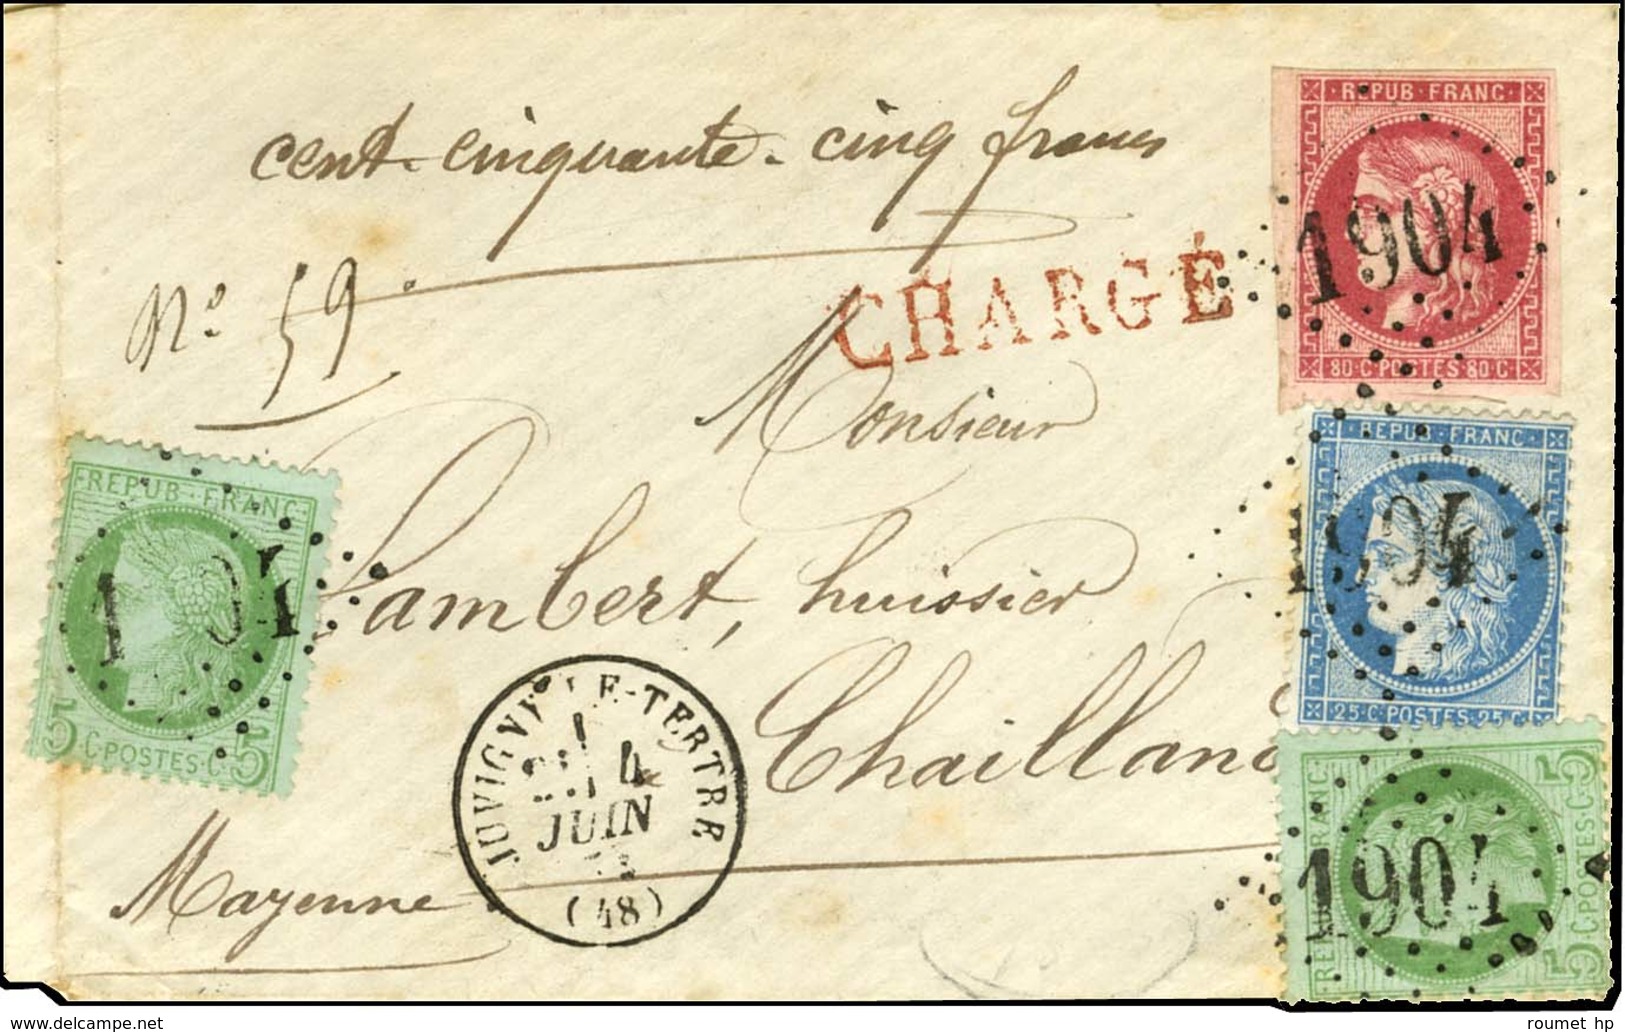 cent-cinquante-cinq francs
No 59.
CHARGÉ
REPUB·FRANC·
1904
80·C·POSTES·80·C·
Monsieur
REPUB·FRANC·
1904
25·C·POSTES·25·C·
·REPUB·FRANC·
1 04
5·C·POSTES·C·5
Lambert, huissier
Chailland
JUVIGNÉ-LE-TERTRE
4
JUIN
(48)
REPUB·FRANC·
1904
5·C·POSTES·C·5
Mayenne
roumet hp
www.delcampe.net